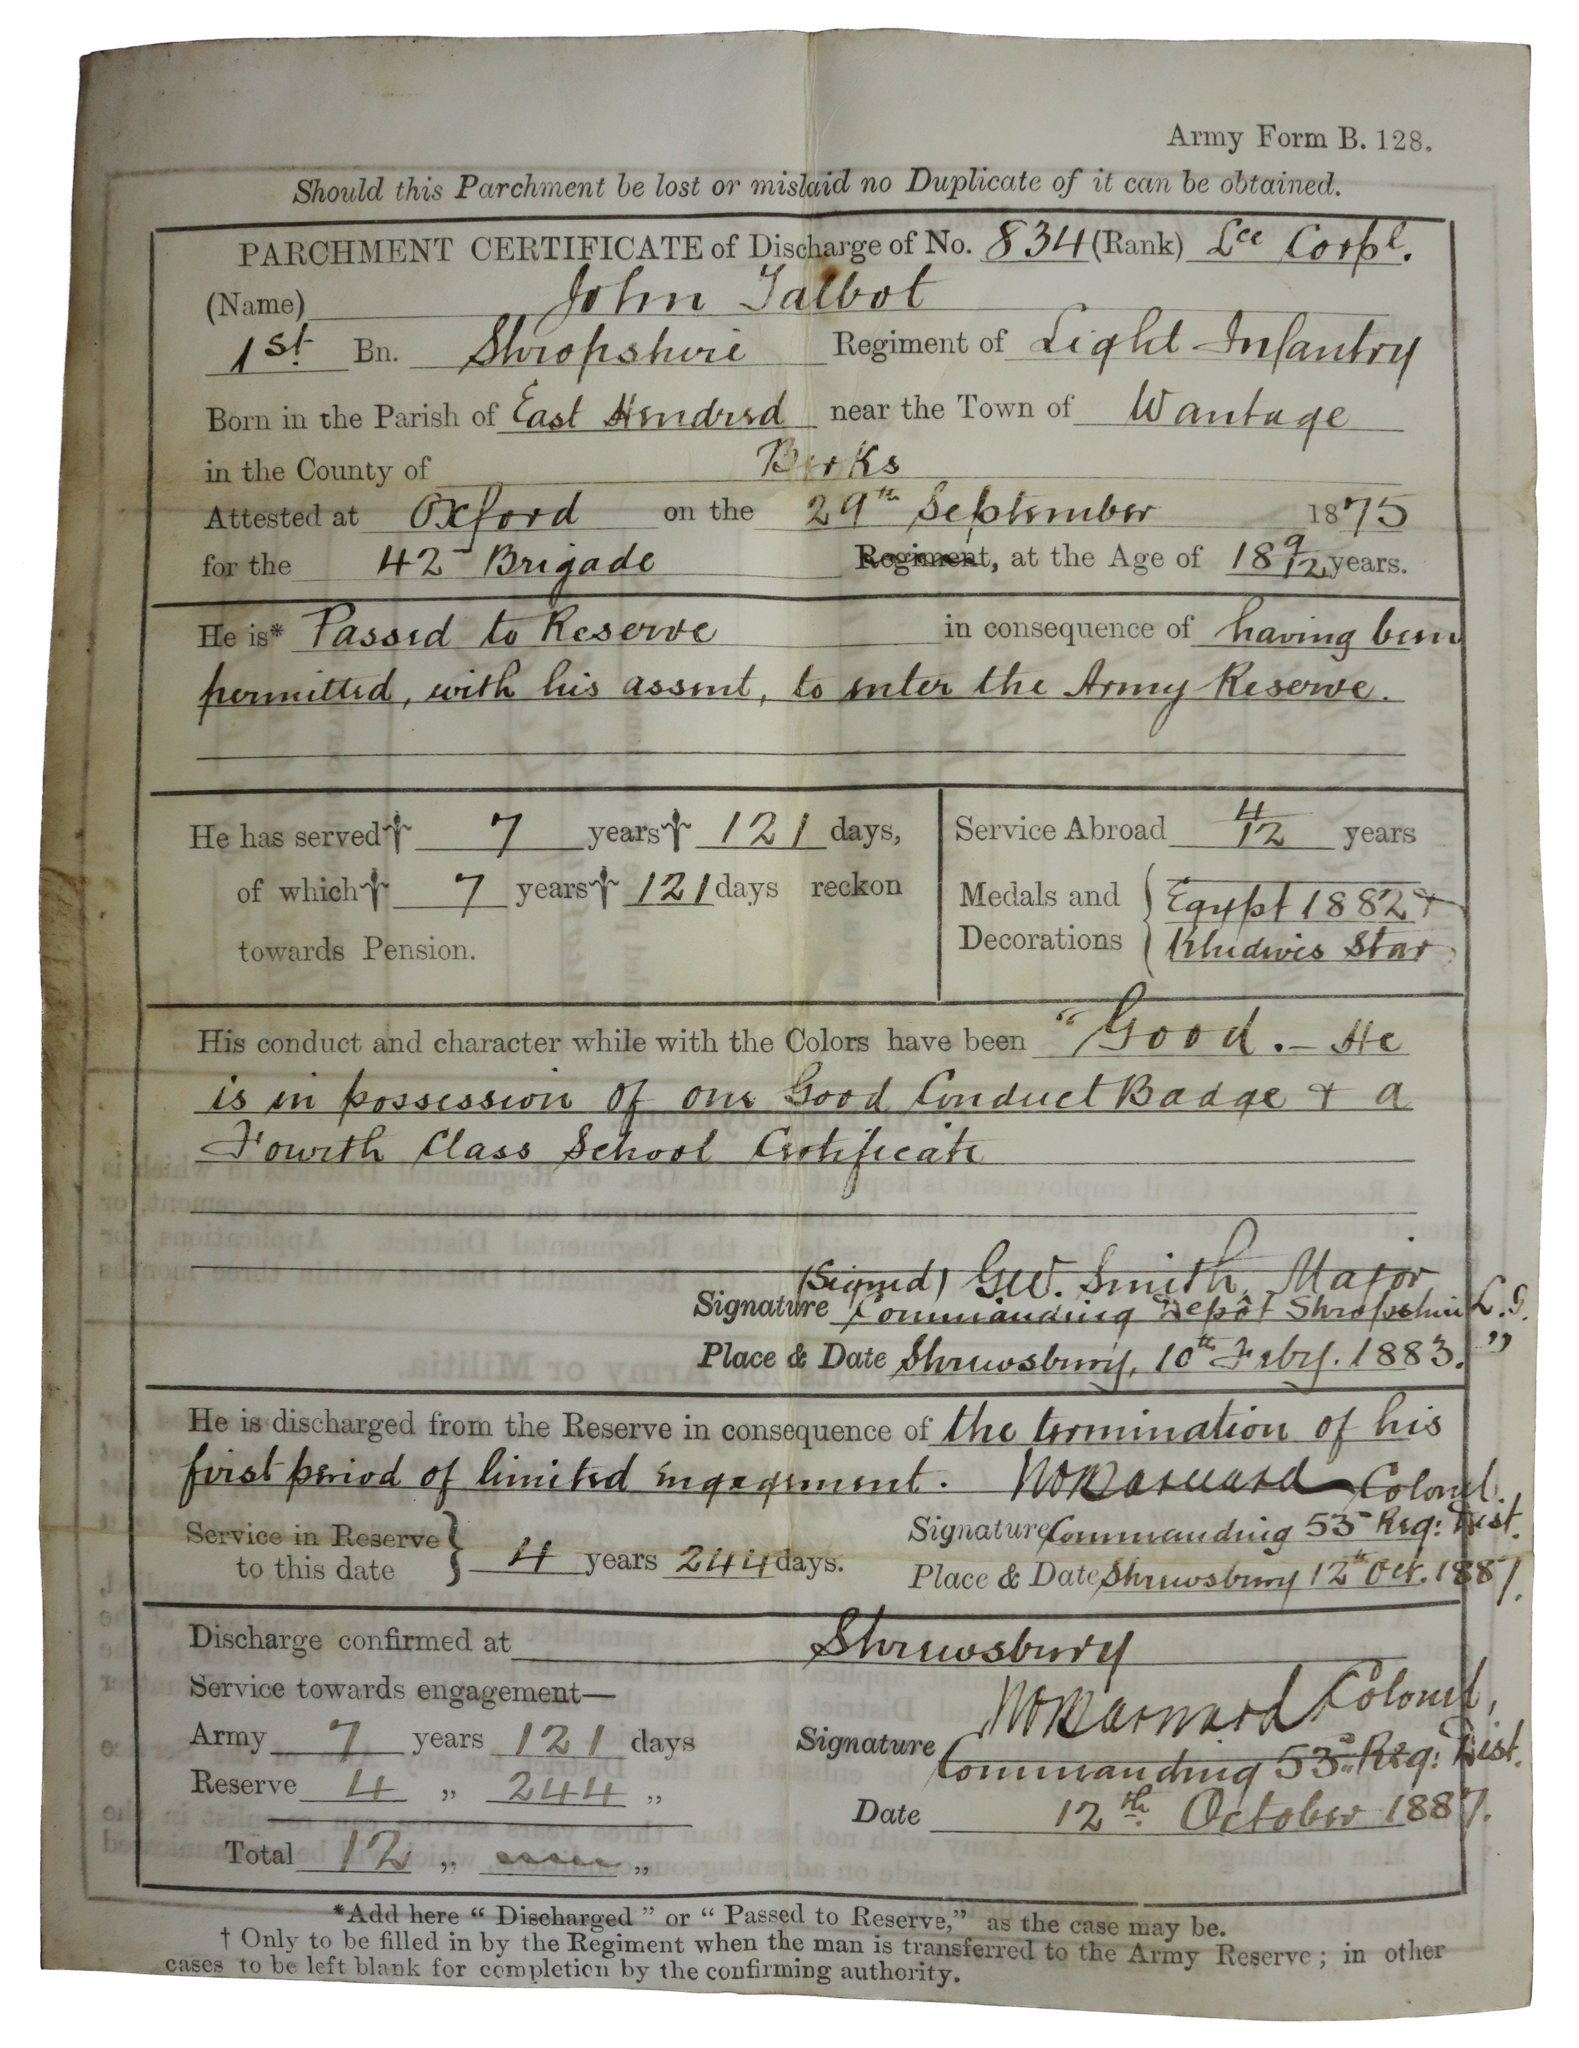 Army Form B. 128.
Should this Parchment be lost or mislaid no Duplicate of it can be obtained.
PARCHMENT CERTIFICATE of Discharge of No. 834 (Rank) Lce Corpl.
(Name) John Talbot
1st Bn. Shropshire Regiment of Light Infantry
Born in the Parish of East Hendred near the Town of Wantage
in the County of Berks
Attested at Oxford on the 29th September 1875
for the 42 Brigade Regiment, at the Age of 18 9/12 years.
He is* Passed to Reserve in consequence of having been
permitted, with his assent, to enter the Army Reserve.
He has served† 7 years† 121 days,
of which† 7 years† 121 days reckon
towards Pension.
Service Abroad 4/12 years
Medals and Decorations Egypt 1882 &
Khedives Star
His conduct and character while with the Colors have been "Good. – He
is in possession of one Good Conduct Badge & a
Fourth Class School Certificate
(Signed) G.W. Smith, Major
Signature Commanding Depôt Shropshire L.I.
Place & Date Shrewsbury, 10th Feby. 1883."
He is discharged from the Reserve in consequence of the termination of his
first period of limited engagement. Colonel.
Service in Reserve to this date } 4 years 244 days.
Signature Commanding 53 Reg: Dist.
Place & Date Shrewsbury 12th Oct. 1887.
Discharge confirmed at Shrewsbury
Service towards engagement—
Army 7 years 121 days
Reserve 4 „ 244 „
Total 12 „ „
Colonel,
Signature Commanding 53rd Reg: Dist.
Date 12th October 1887.
*Add here “ Discharged ” or “ Passed to Reserve,” as the case may be.
† Only to be filled in by the Regiment when the man is transferred to the Army Reserve ; in other
cases to be left blank for completion by the confirming authority.